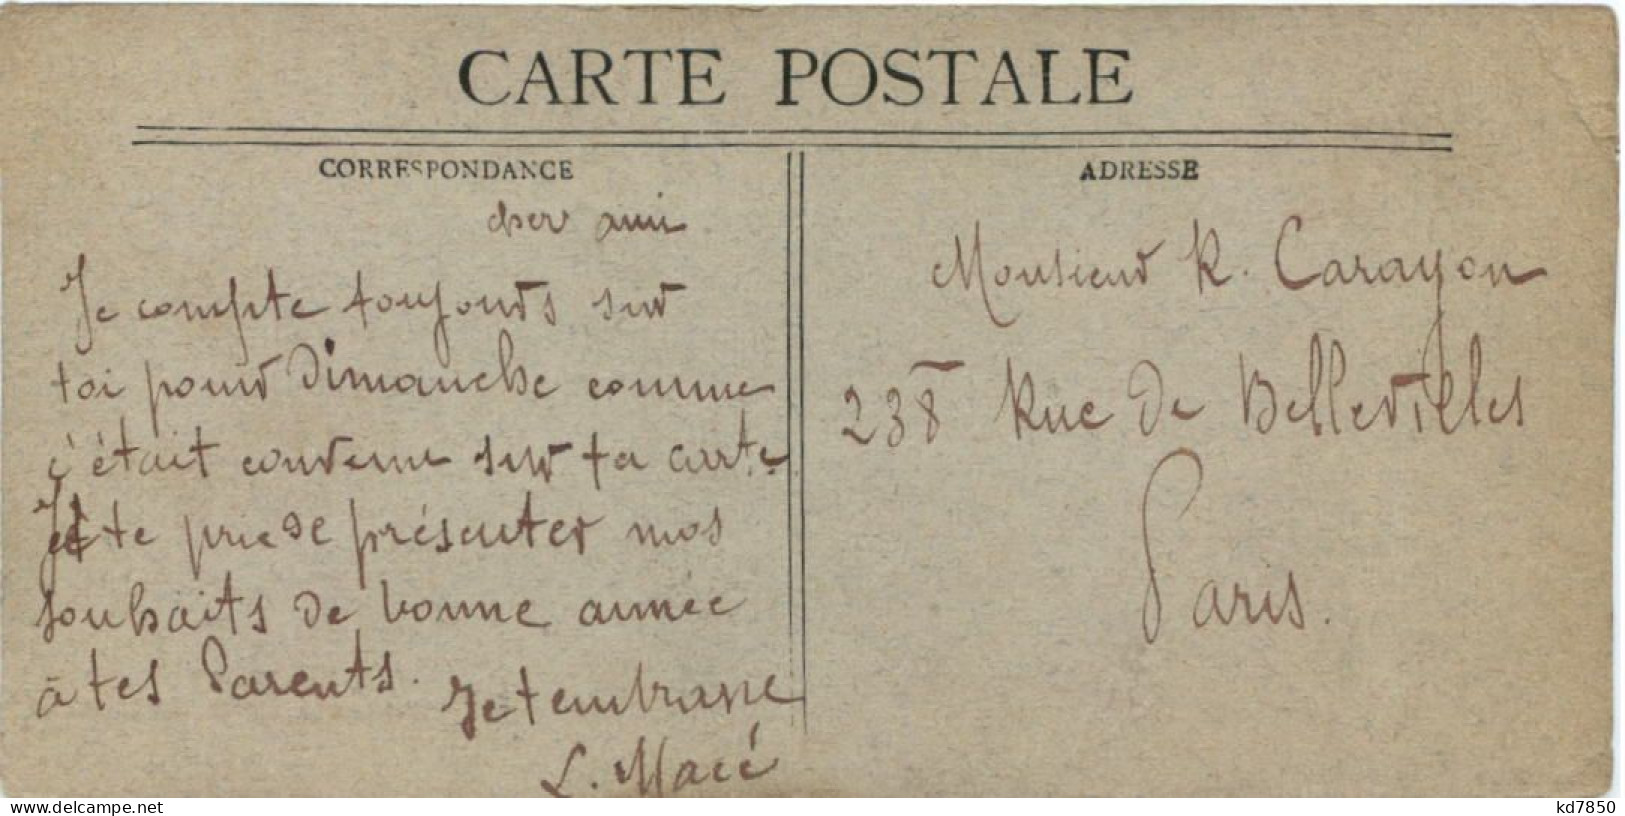 CARTE POSTALE
CORRESPONDANCE
cher ami
Je compte toujours sur
toi pour Dimanche comme
c'était convenu sur ta carte
te prie de présenter nos
souhaits de bonne année
à tes Parents.
Je t'embrasse
L. Macé
ADRESSE
Monsieur R. Carayon
238 Rue de Bellevilles
Paris.
www.delcampe.net
kd7850